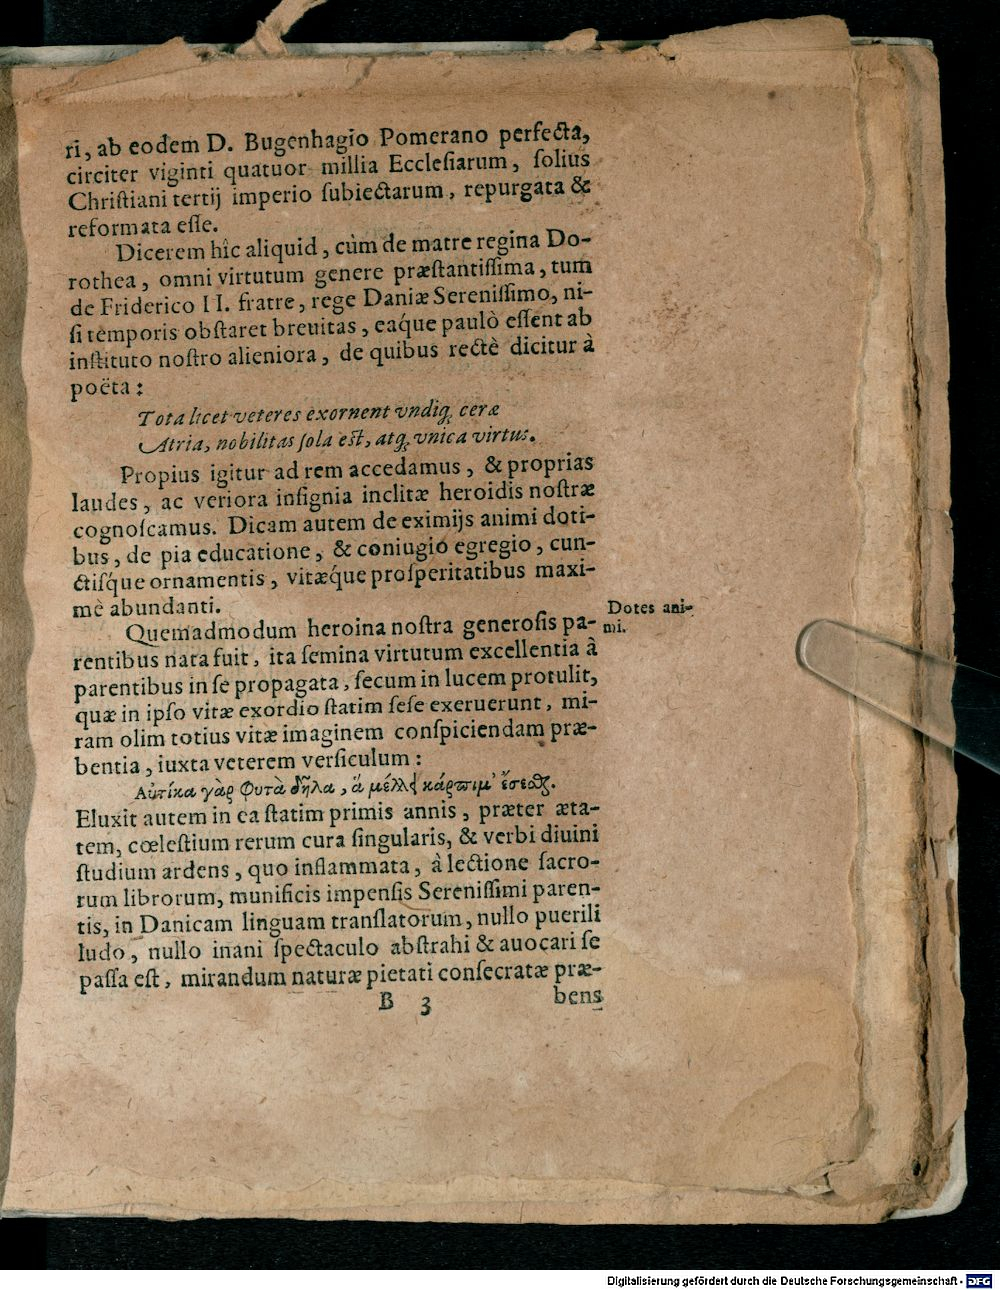 ri, ab eodem D. Bugenhagio Pomerano perfecta,
circiter viginti quatuor millia Ecclesiarum, solius
Christiani tertij imperio subiectarum, repurgata &
reformata esse.
Dicerem hîc aliquid, cùm de matre regina Do-
rothea, omni virtutum genere præstantissima, tum
de Friderico II. fratre, rege Daniæ Serenissimo, ni-
si temporis obstaret breuitas, eaq́ue paulò essent ab
instituto nostro alieniora, de quibus rectè dicitur à
poëta:
Tota licet veteres exornent vndiq; ceræ
Atria, nobilitas sola est, atq; vnica virtus.
Propius igitur ad rem accedamus, & proprias
laudes, ac veriora insignia inclitæ heroidis nostræ
cognoscamus. Dicam autem de eximijs animi doti-
bus, de pia educatione, & coniugio egregio, cun-
ctisq́ue ornamentis, vitæq́ue prosperitatibus maxi-
mè abundanti.
Quemadmodum heroina nostra generosis pa-
rentibus nata fuit, ita semina virtutum excellentia à
parentibus in se propagata, secum in lucem protulit,
quæ in ipso vitæ exordio statim sese exeruerunt, mi-
ram olim totius vitæ imaginem conspiciendam præ-
bentia, iuxta veterem versiculum:
Αὐτίκα γὰρ φυτὰ δῆλα, ἃ μέλλει κάρπιμ' ἔσεσθαι.
Eluxit autem in ea statim primis annis, præter æta-
tem, cœlestium rerum cura singularis, & verbi diuini
studium ardens, quo inflammata, à lectione sacro-
rum librorum, munificis impensis Serenissimi paren-
tis, in Danicam linguam translatorum, nullo puerili
ludo, nullo inani spectaculo abstrahi & auocari se
passa est, mirandum naturæ pietati consecratæ præ-
B 3
bens
Dotes ani-
mi.
Digitalisierung gefördert durch die Deutsche Forschungsgemeinschaft - DFG